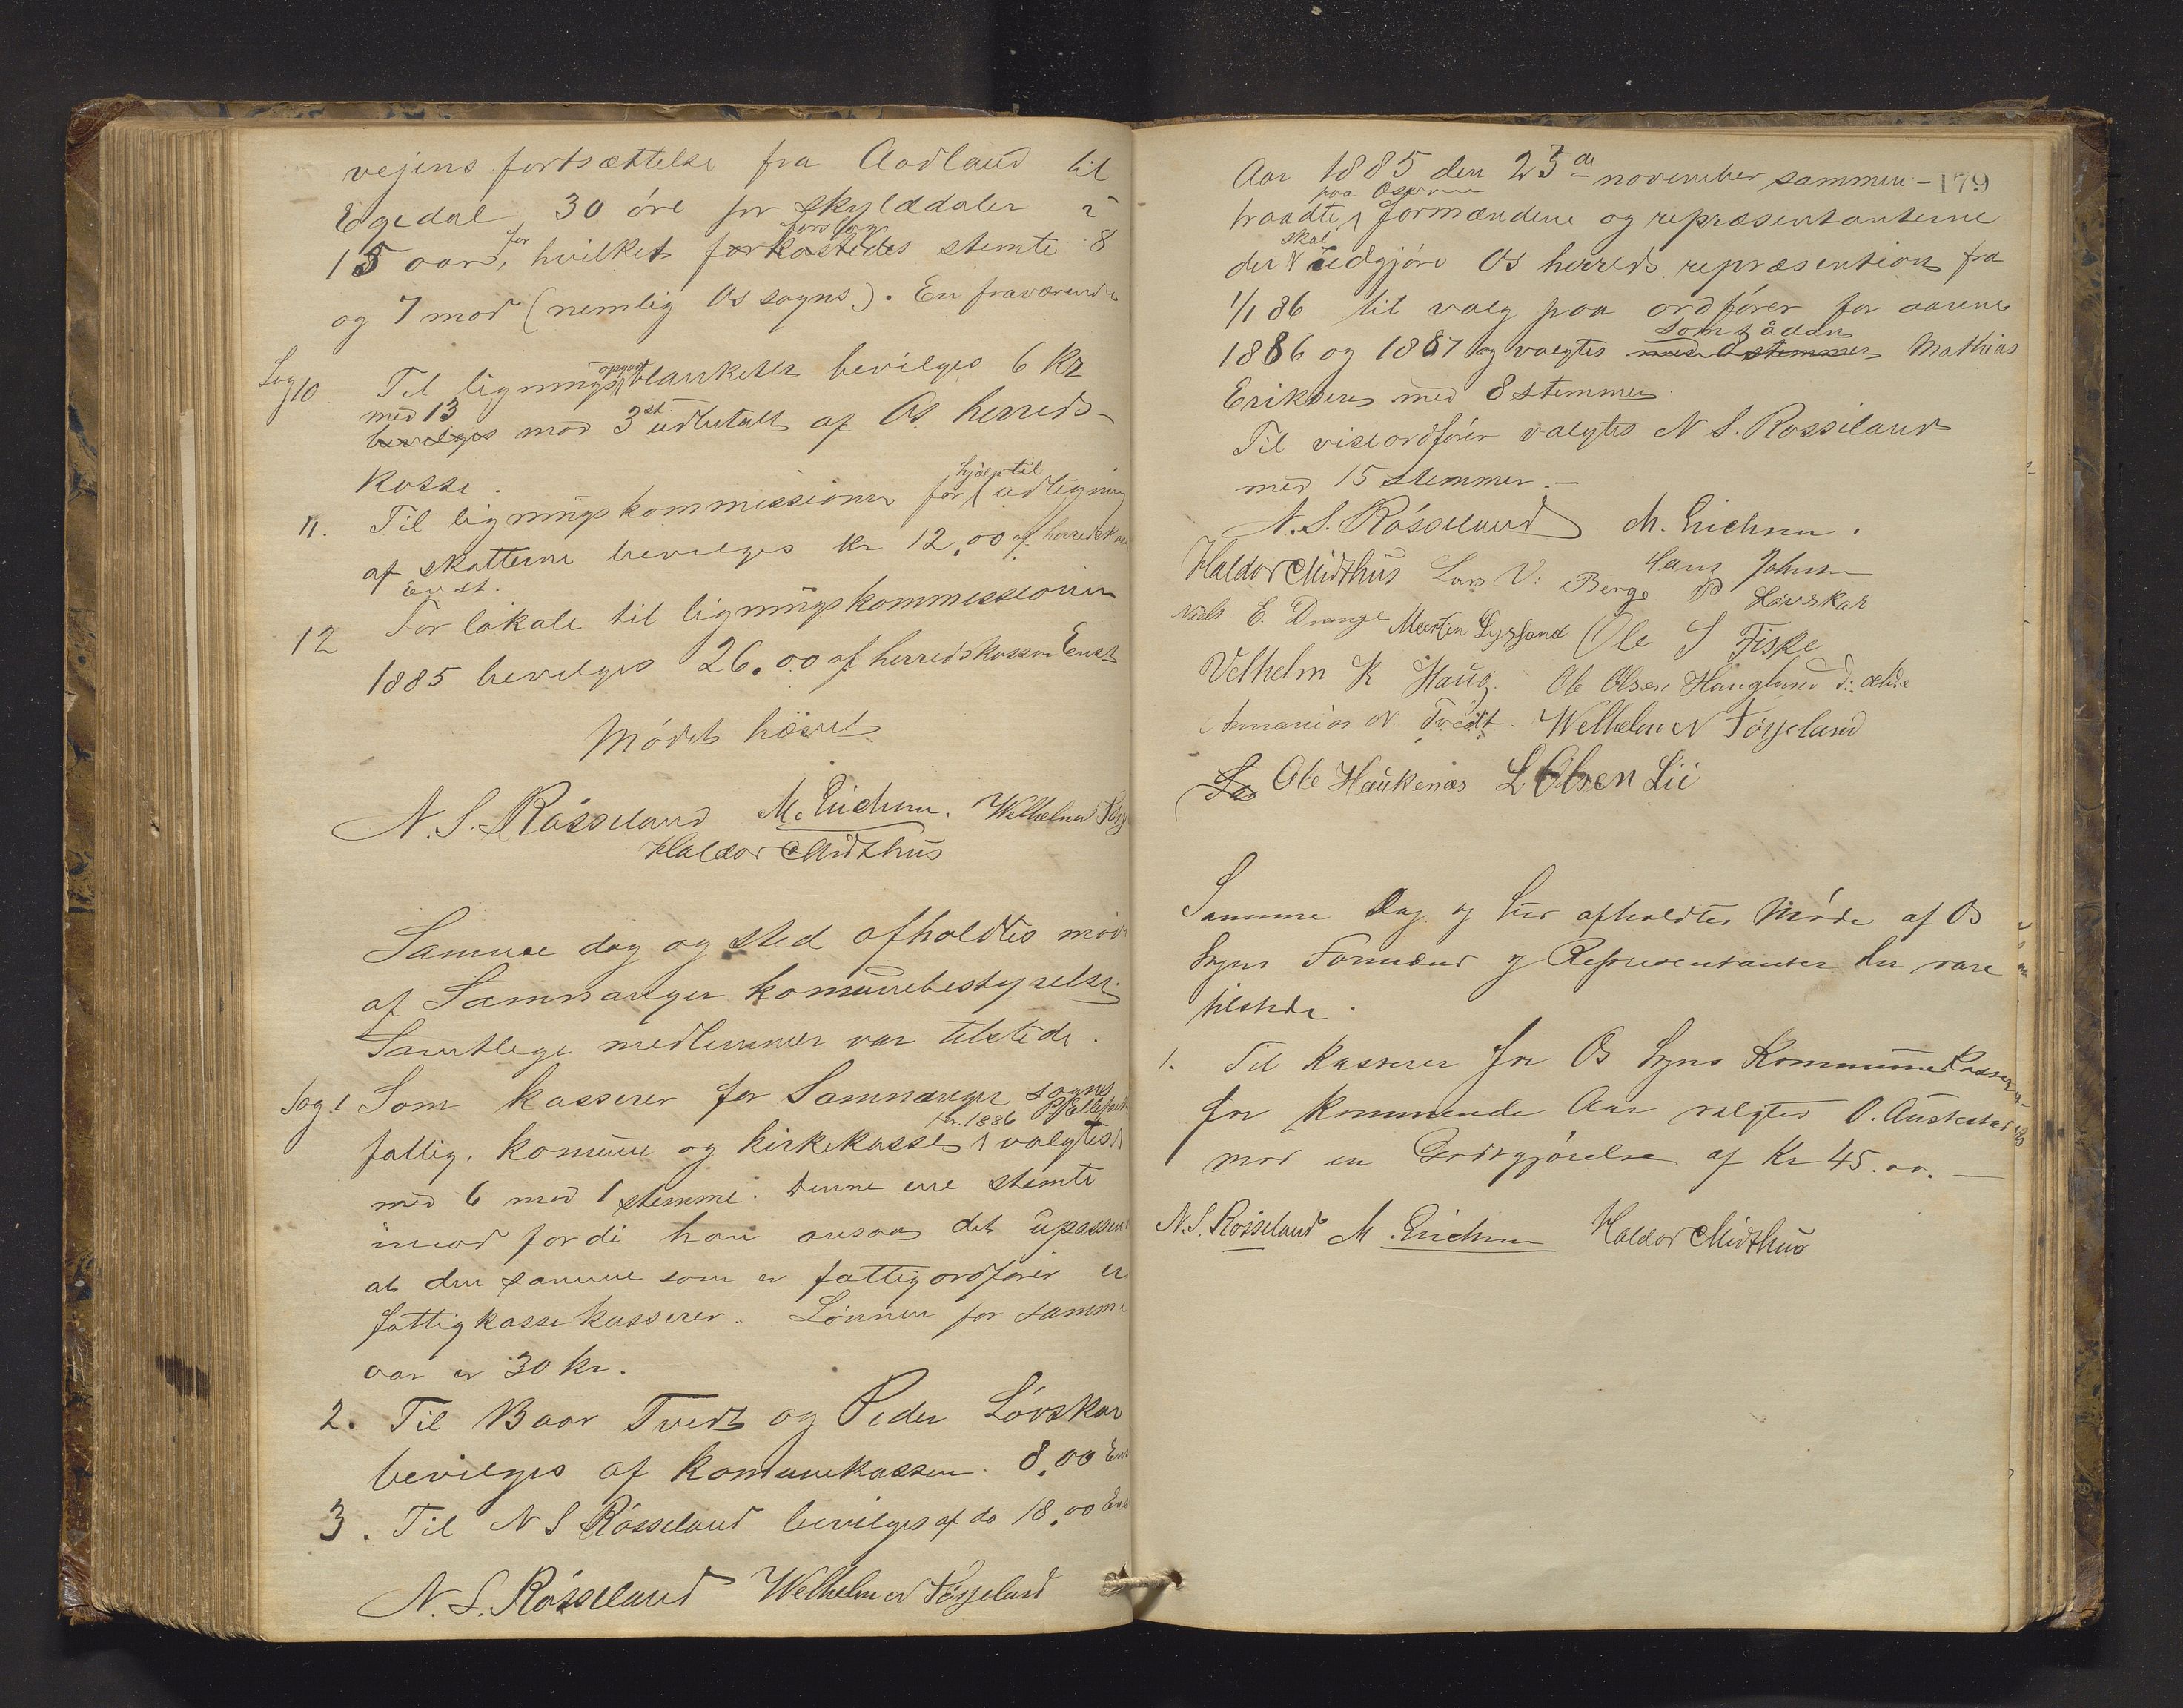 vejens fortsættelse fra Aadland til
Egedal 30 øre pr skylddaler i
15 aar, for hvilket forslag forkastedes stemte 8
og 7 mod (nemlig Os sogns). En fraværende
Sag 10. Til lignings blanketter bevilges 6 Kr
med 13
bevilges mod 3 st. udbetalt af Os herreds-
kasse.
11. Til ligningskommissionen for hjælp til udligning
af skatterne bevilges kr 12,00 af herredskassen
Enst.
12 For lokale til ligningskommissionen
1885 bevilges 26.00 af herredskassen Enst
Mødet hævet
N. S. Røsseland M. Erichsen. Wilhelm N Tøsse
Haldor Midthus
Samme dag og sted afholdtes møde
af Samnanger komunebestyrelse.
Samtlige medlemmer var tilstede.
Sag 1 Som kasserer for Samnanger sogns
fattig, komune og kirkekasse for 1886 valgtes
med 6 mod 1 stemme. Denne ene stemte
imod fordi han ansaa det upassende
at den samme som er fattigordfører er
fattigkassekasserer. Lønnen for samme
aar er 30 kr.
2. Til Baar Tvedt og Peder Løvskar
bevilges af komunekassen. 8,00 Enst
3. Til N S Røsseland bevilges af do 18,00 Enst
N. S. Røsseland Wilhelm N Tøsseland
179
Aar 1885 den 23de november sammen-
traadte paa Osøren formændene og repræsentanterne
der skal udgjøre Os herreds repræsention fra
1/1 86 til valg paa ordfører for aarene
1886 og 1887 og valgtes med 8 stemmer som sådan Mathias
Eriksen med 8 stemmer.
Til viseordfører valgtes N S. Røsseland
med 15 stemmer.-
N. S. Røsseland M. Erichsen.
Haldor Midthus Lars V. Berge Hans Johnsen
Løvskar
Niels E. Drange Martin Lyssand Ole S Fiske
Velhelm K Haug. Ole Olsen Haugland d: ældre
Annanias N. Tvedt. Welhelm N Tøsseland
Las Ole Haukenæs L. Olsen Lii
Samme Dag og Sted afholdtes Møde af Os
Sogns Formænd og Representanter der vare
tilstede.
1. Til Kasserer for Os Sogns Kommunekasse
for kommende Aar valgtes O. Austestad
mod en Godtgjørelse af Kr 45.00.-
N. S. Røsseland M. Erichsen Haldor Midthus